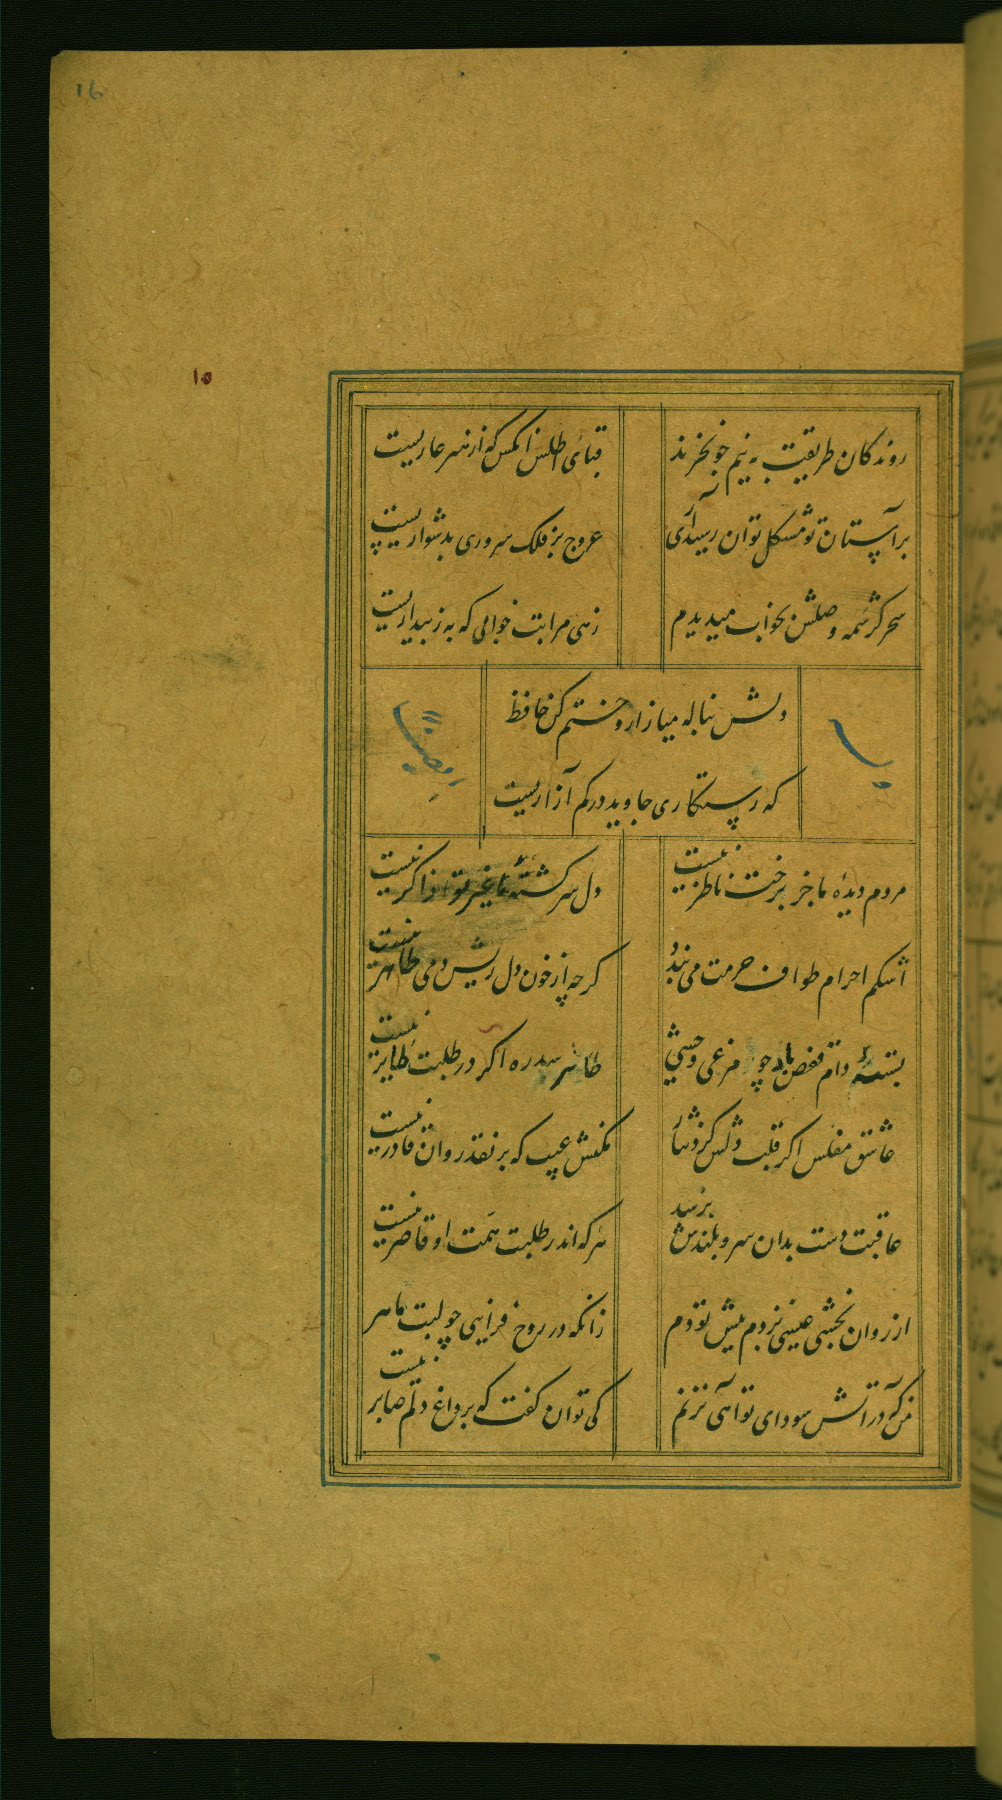 16
۱۵
روندکان طریقت به نیم جو نخرند قبای اطلس انکس که از هنر عاریست
بر آستان تو مشکل توان رسید آری عروج بر فلک سروری بدشواریست
سحر کرشمه وصلش بخواب میدیدم زهی مراتب خوابی که به ز بیداریست
دلش بناله میازار و ختم کن حافظ
که رستکاری جاوید در کم آزاریست
مردم دیده ما جز برخت ناظر نیست دل سرکشته ما غیر تو را ذاکر نیست
اشکم احرام طواف حرمت می بندد کرچه از خون دل ریش دمی طاهر نیست
بستهٔ دام قفص باد چو مرغی وحشی طایر سدره اکر در طلبت طایر نیست
عاشق مفلس اکر قلب دلش کرد نثار مکنش عیب که بر نقد روان قادر نیست
عاقبت دست بدان سرو بلندش برسد هرکه اندر طلبت همت او قاصر نیست
از روان بخشی عیسی نزدم پیش تو دم زانکه در روح فزایی چو لبت ماهر نیست
من که در اتش سودای تو آهی نزنم کی توان کفت که بر داغ دلم صابر